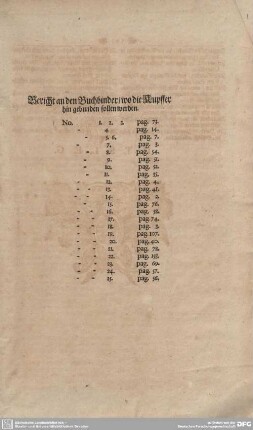 Bericht an den Buchbinder/ wo die Kupffer
hin gebunden sollen werden.
No. 1. 2. 3. pag. 73.
- 4. pag. 14.
- 5. 6. pag. 7.
- 7. pag. 3.
- 8. pag. 54.
- 9. pag. 9.
- 10. pag. 12.
- 11. pag. 15.
- - 12. pag. 4.
- - 13. pag. 41.
- - 14. pag. 2.
- - 15. pag. 76.
- - 16. pag. 38.
- - 17. pag. 74.
- - 18. pag. 3.
- - 19. pag. 107.
- - 20. pag. 40.
- - 21. pag. 72.
- - 22. pag.
- - 23. pag. 69.
- - 24. pag. 57.
- - 25. pag. 36.